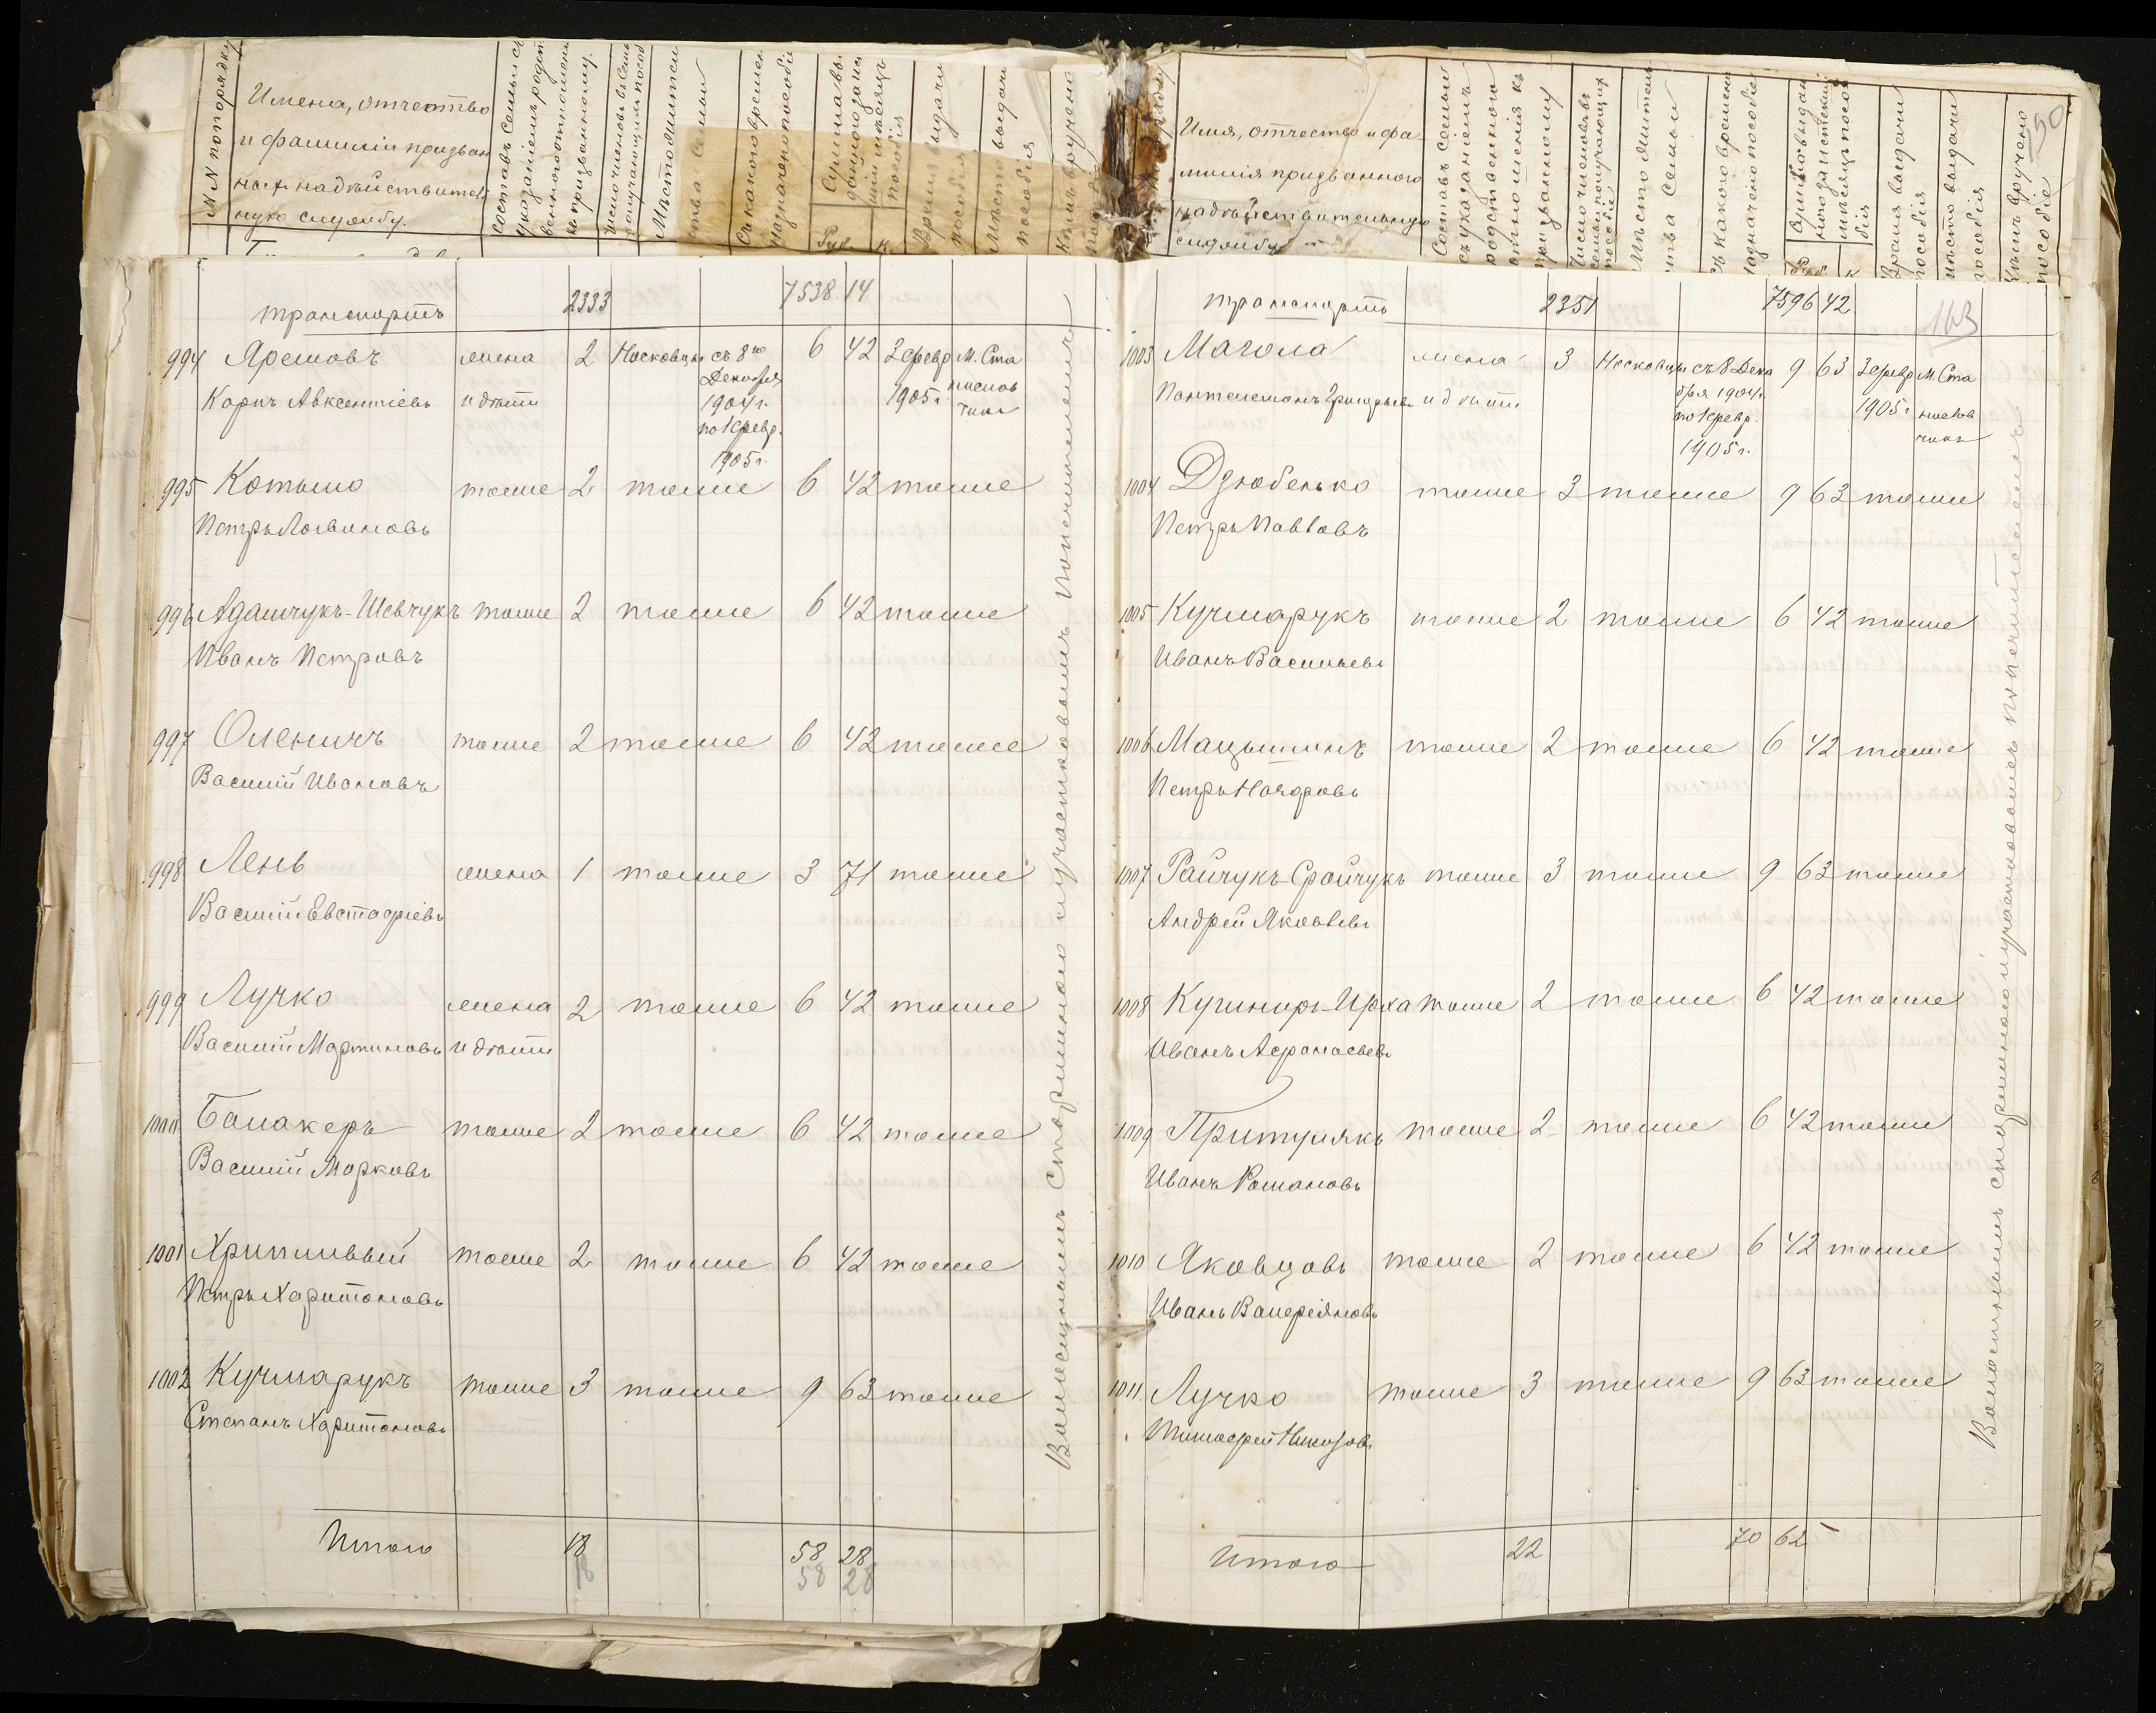 №№ по порядку
Имена, отчество
и фамилии призван
ныхъ на действитель
ную службу.
Составъ семьи съ
указаніемъ родст
веннаго отношенія
къ призванному.
Число членовъ въ семь
Местожитель
ства семьи
Съ какого времени
назначено пособіе
Сумма вы
даннаго за ис
мѣсяцъ
пособія
Руб. к
Время выдачи
пособія
Мѣсто выдачи
пособія
Кѣмъ вручено
транспортъ 2333 7538 14
994 Яремовъ жена 2 Носковцы съ 8го 6 42 3 февр М. Ста
Карпъ Авксентіевъ и дѣти Декабря 1905 г. нислав
1904 г. чикъ
по 1 февр.
1905 г.
995 Котыло тоже 2 тоже 6 42 тоже
Петръ Логвиновъ
996 Адамчукъ-Шевчукъ тоже 2 тоже 6 42 тоже
Иванъ Петровъ
997 Оленичъ тоже 2 тоже 6 42 тоже
Василій Ивановъ
998 Лень жена 1 тоже 3 71 тоже
Василій Евстафіевъ
999 Лучко жена 2 тоже 6 42 тоже
Василій Мартиновъ и дѣти
1000 Балакеръ тоже 2 тоже 6 42 тоже
Василій Марковъ
1001 Хрипливый тоже 2 тоже 6 42 тоже
Петръ Харитоновъ
1002 Кучмарукъ тоже 3 тоже 9 63 тоже
Степанъ Харитоновъ
Итого 18 58 28
18 58 28
Волостнымъ Старшиною и участковымъ попечителемъ
90
Имя, отчество и фа
милія призваннаго
на дѣйствительную
службу
Составъ семьи
съ указаніемъ
родственнаго
отношенія къ
призванному
Число членовъ
семьи получающихъ
пособіе
Мѣстожитель
ства семьи
Съ какого времени
назначено пособіе
Сумма выдан
ного за истекшій
мѣсяцъ посо
бія
Руб. к
Время выдачи
пособія
Мѣсто выдачи
пособія
Кѣмъ вручено
пособіе
транспортъ 2351 7596 42
163
1003 Магола жена 3 Носковцы съ 8 Дека 9 63 3 февр М. Ста
Пантелемонъ Григорьевъ и дѣти бря 1904 г. 1905 г. нислав
по 1 февр. чикъ
1905 г.
1004 Дзюбенько тоже 3 тоже 9 63 тоже
Петръ Павловъ
1005 Кучмарукъ тоже 2 тоже 6 42 тоже
Иванъ Васильевъ
1006 Мацышинъ тоже 2 тоже 6 42 тоже
Петръ
1007 Райчукъ-Срайчукъ тоже 3 тоже 9 63 тоже
Андрей Яковлевъ
1008 Кушниръ-Ирха тоже 2 тоже 6 42 тоже
Иванъ Афанасьевъ
1009 Притулякъ тоже 2 тоже 6 42 тоже
Иванъ Романовъ
1010 Яковцовъ тоже 2 тоже 6 42 тоже
Иванъ Валеріяновъ
1011 Лучко тоже 3 тоже 9 63 тоже
Тимофей
Итого 22 70 62
Волостнымъ старшиною и участковымъ попечителемъ